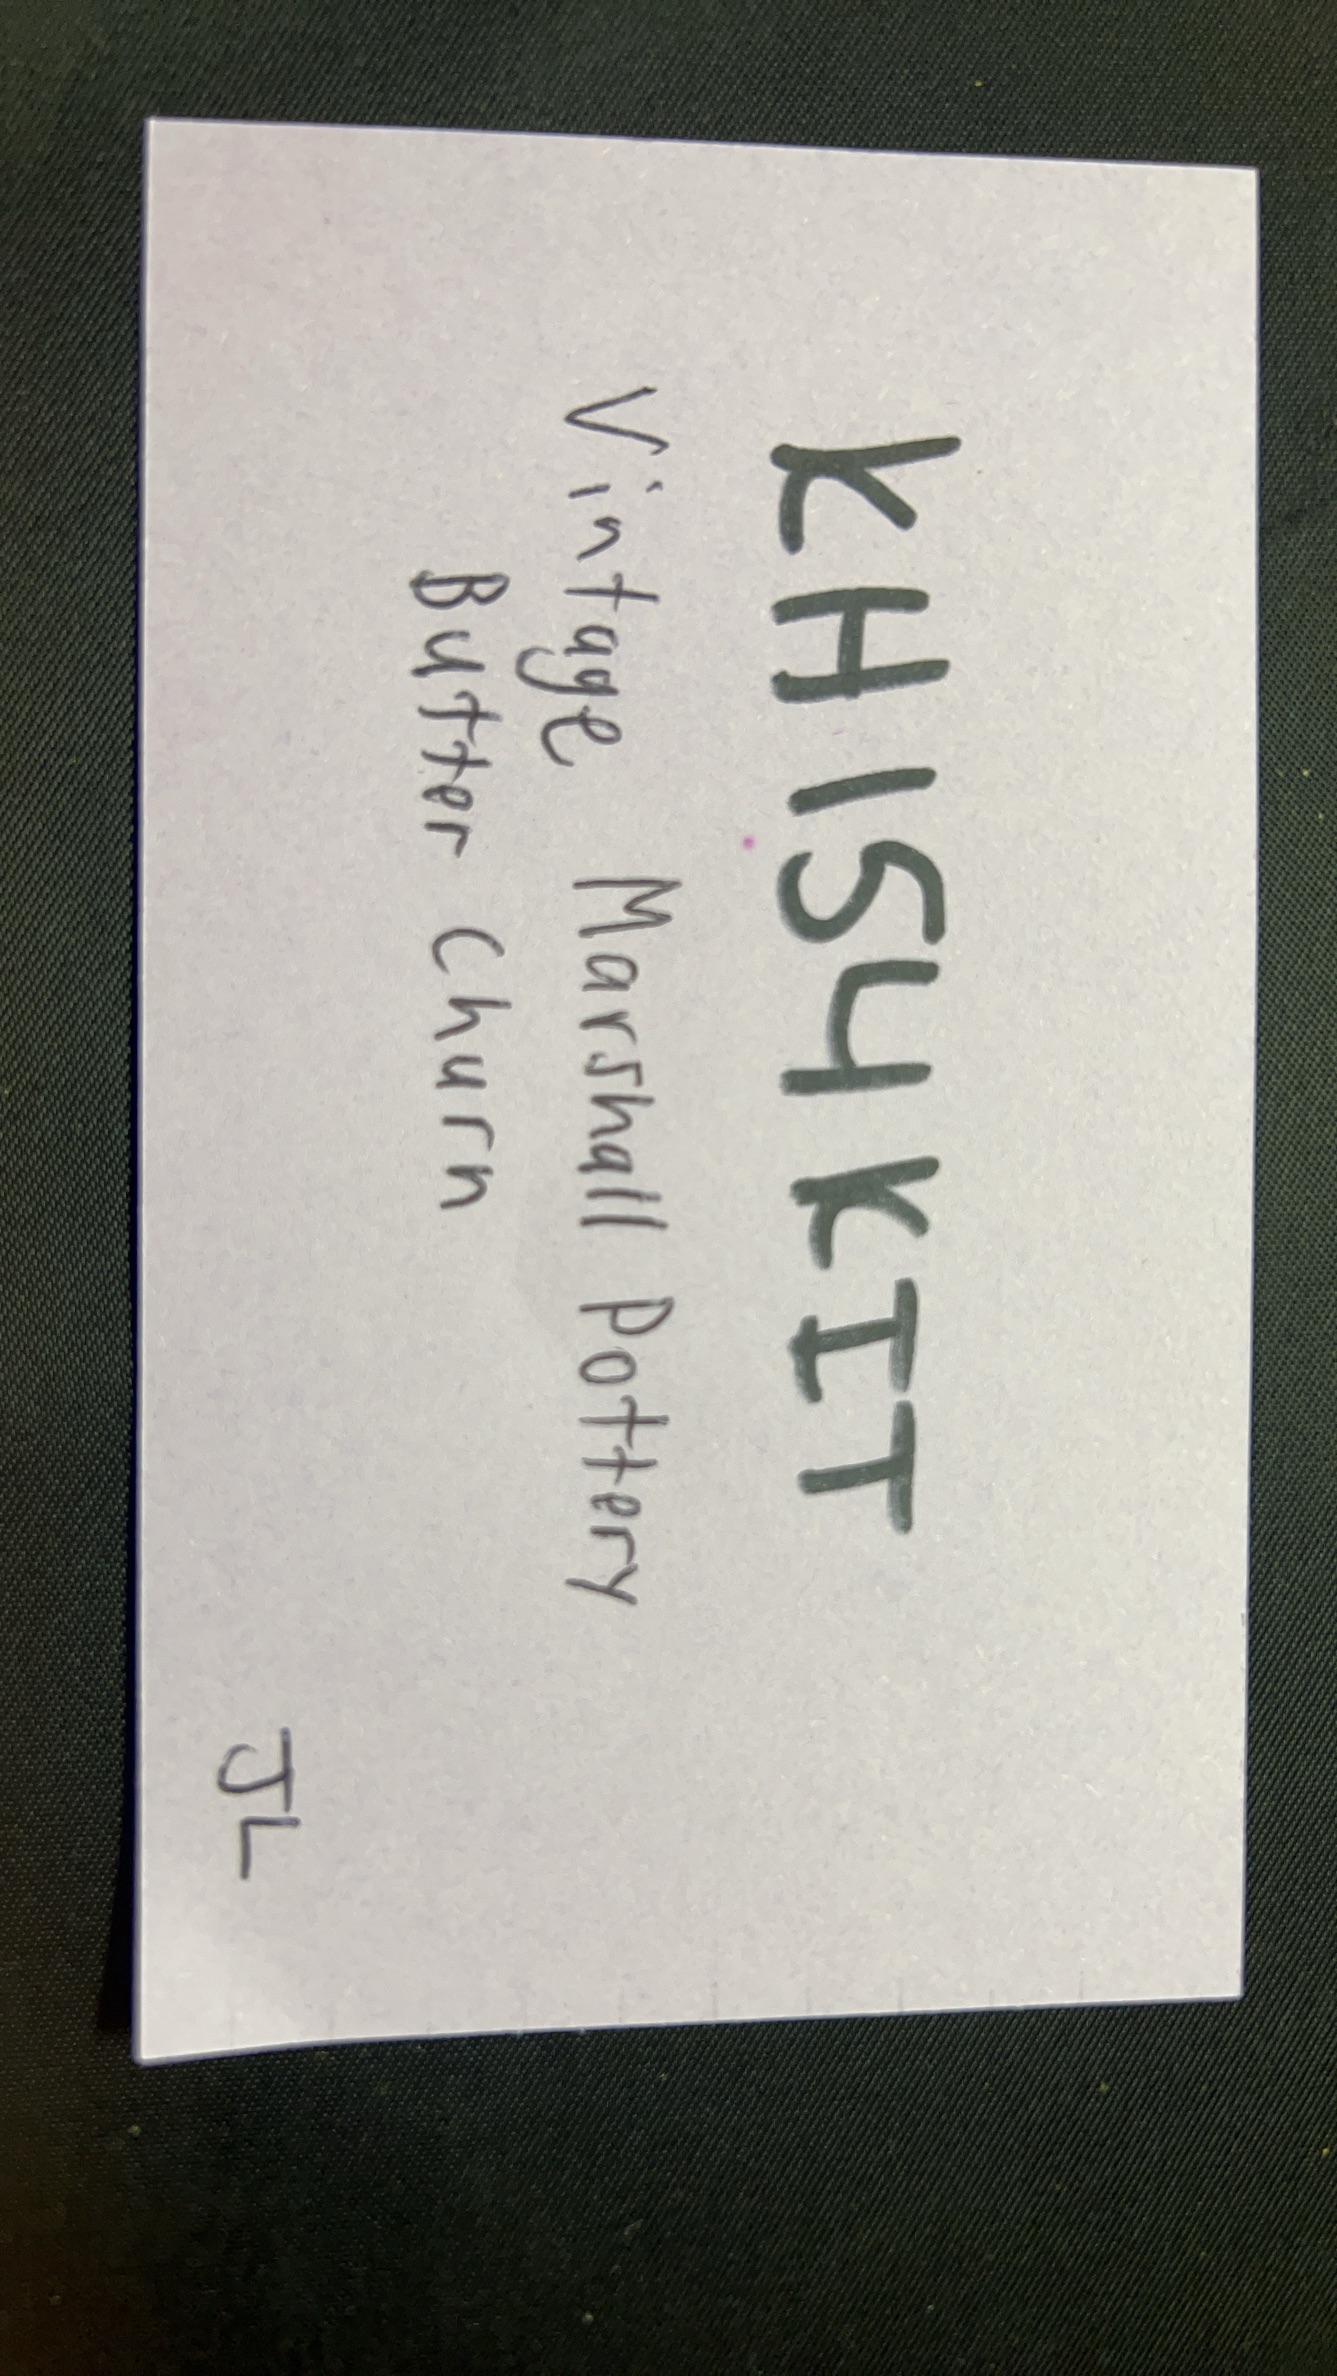 KH154 KIT
Vintage Marshall Pottery
Butter Churn
JL